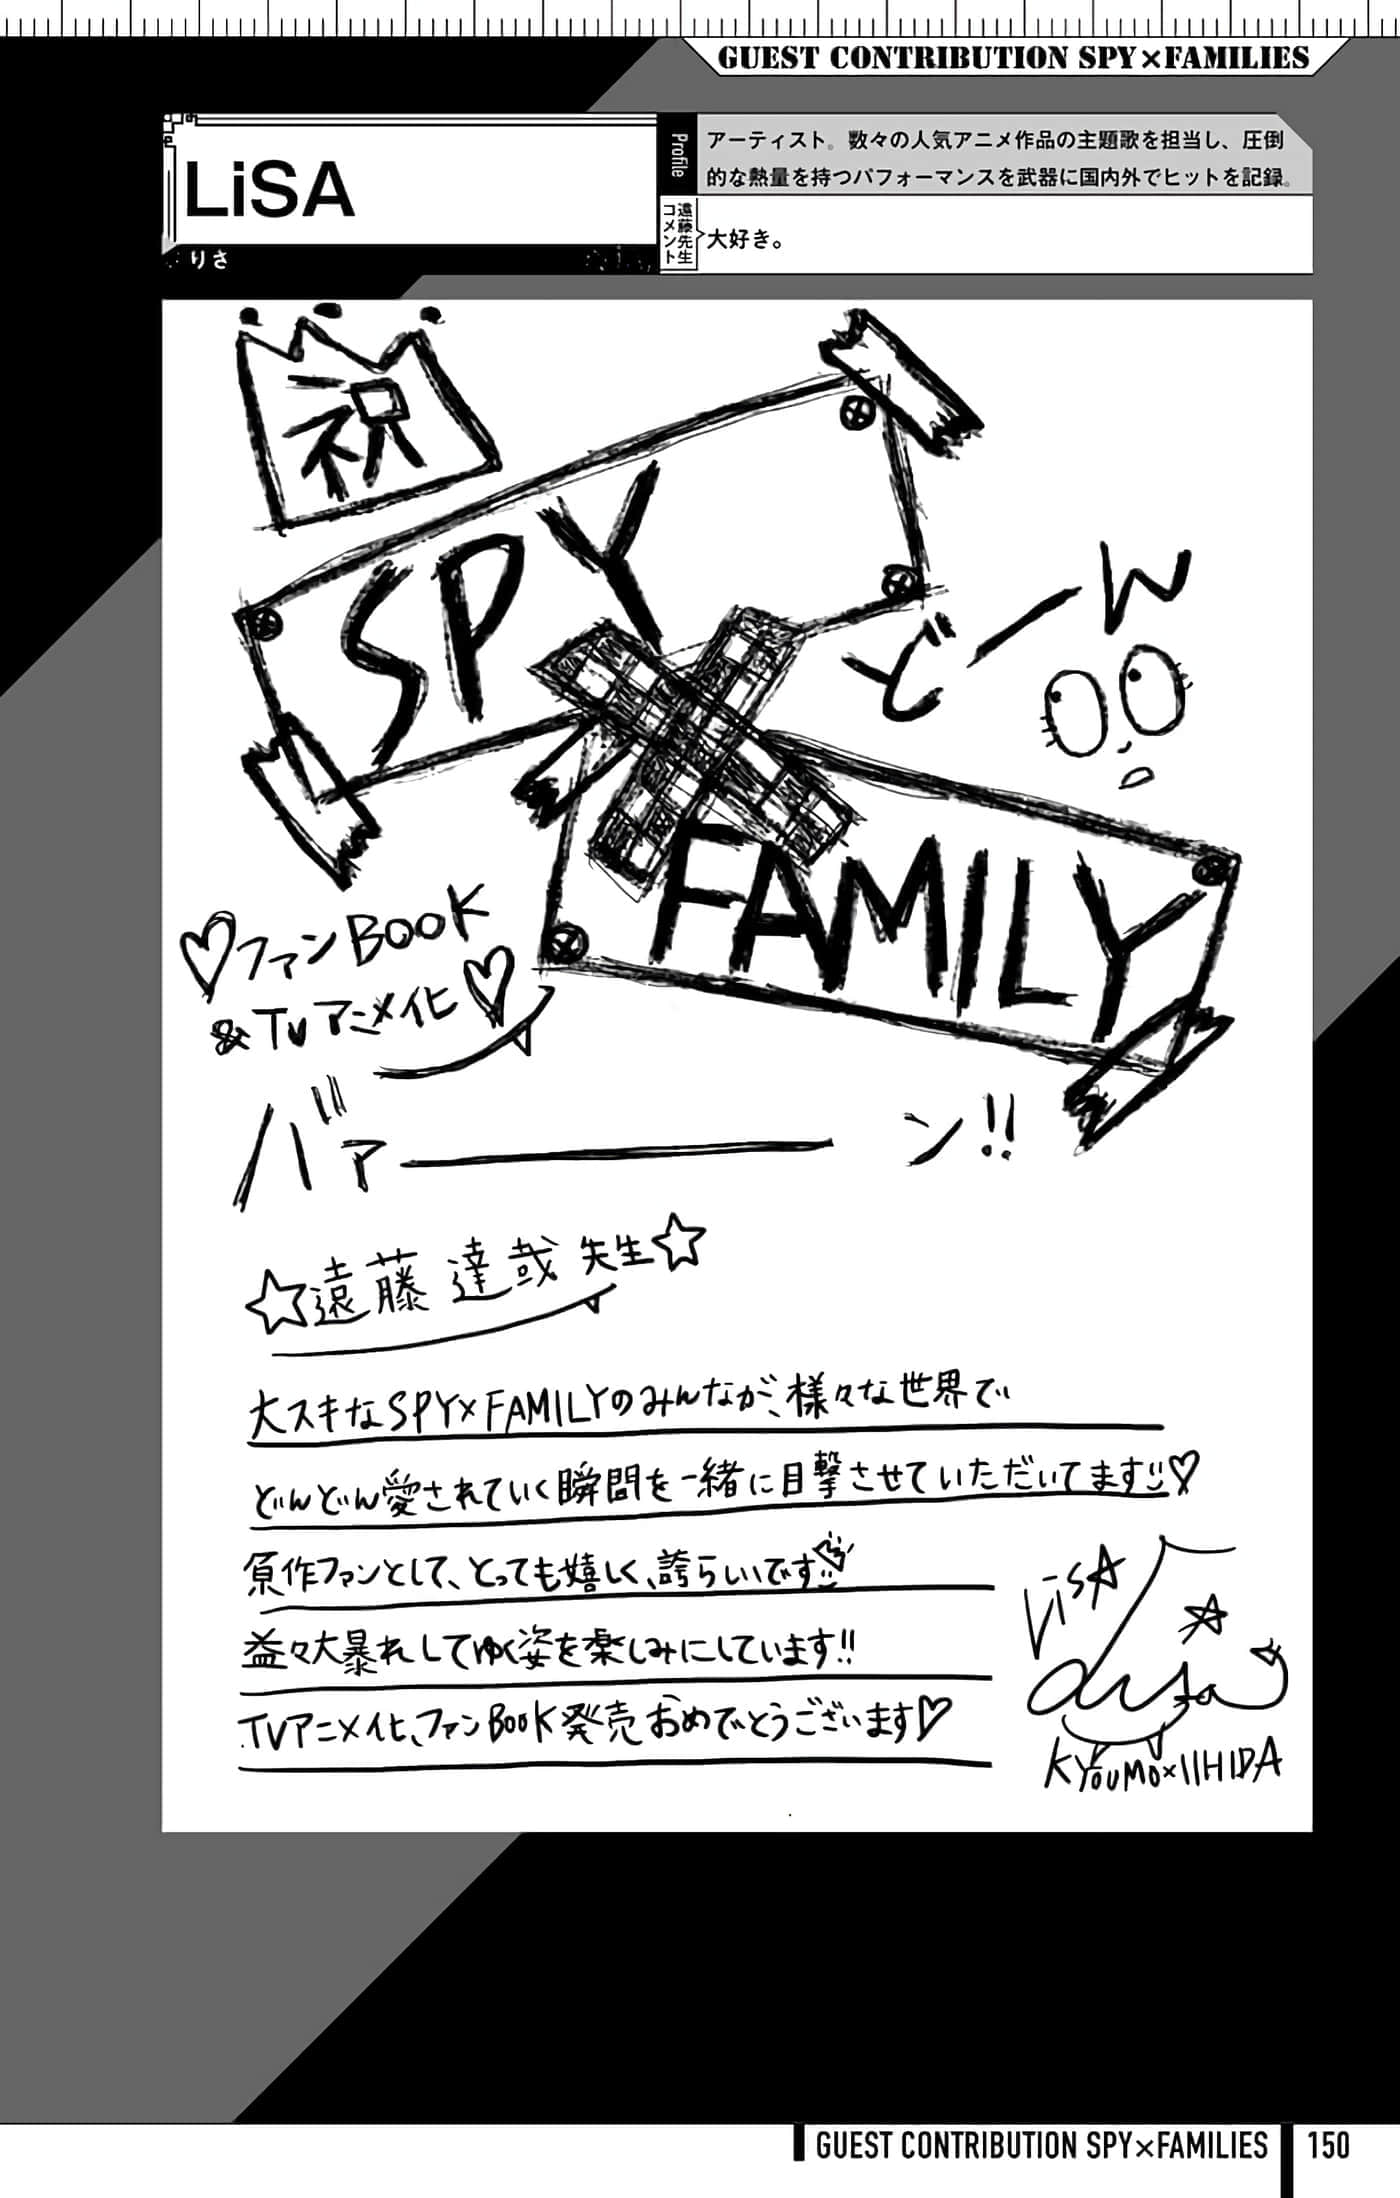 GUEST CONTRIBUTION SPY×FAMILIES
LiSA
りさ
Profile
アーティスト。数々の人気アニメ作品の主題歌を担当し、圧倒
的な熱量を持つパフォーマンスを武器に国内外でヒットを記録。
遠藤先生
コメント
大好き。
祝
SPY
×
FAMILY
どーん
♡ファンBOOK
&TVアニメ化♡
バァーーン!!
☆遠藤達哉先生☆
大スキなSPY×FAMILYのみんなが、様々な世界で
どんどん愛されていく瞬間を一緒に目撃させていただいてます♡
原作ファンとして、とっても嬉しく、誇らしいです
益々大暴れしてゆく姿を楽しみにしています!!
TVアニメ化、ファンBOOK発売おめでとうございます♡
LiSA
LiSA
KYOUMO×IIHIDA
GUEST CONTRIBUTION SPY×FAMILIES
150